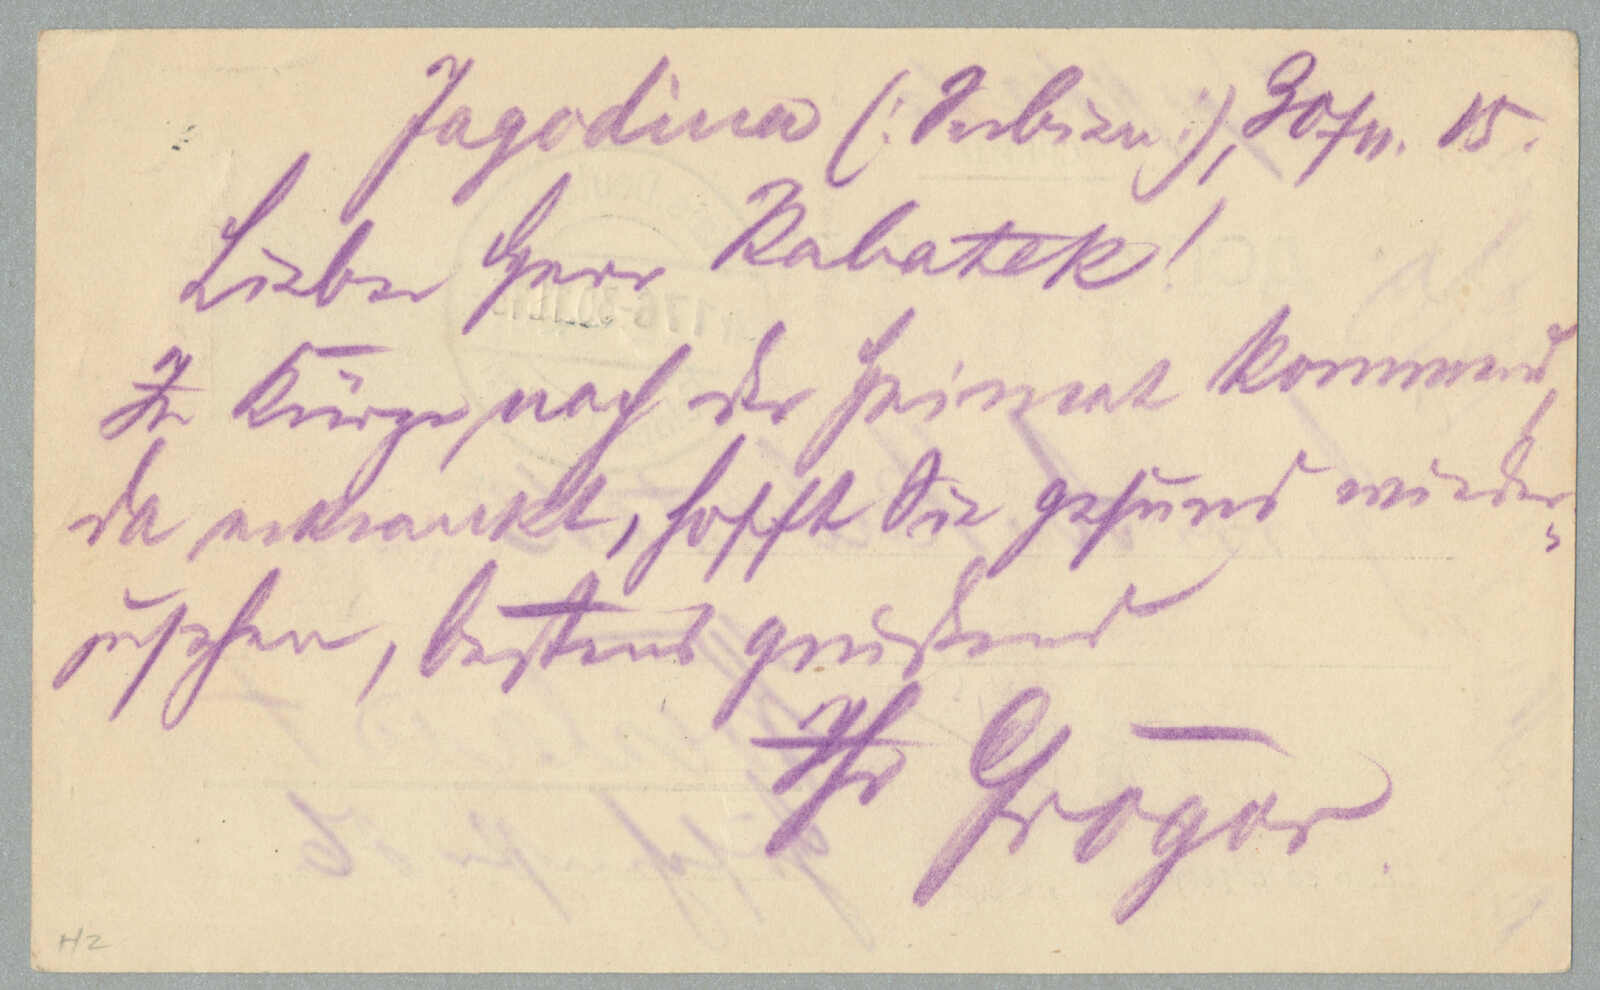 Jagodina (: Serbien :), 30/11. 15.
Lieber Herr Kabatek!
In Kürze nach der Heimat kommend,
da erkrankt, hofft Sie gesund wieder-
zusehen, bestens grüßend
Ihr Gröger
H2